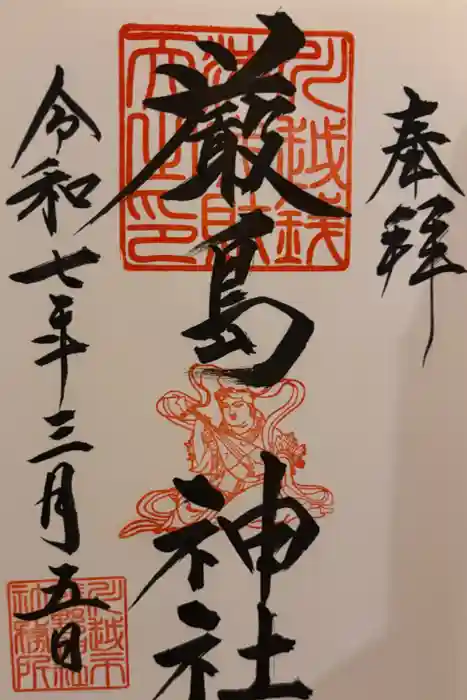 奉拝
川越銭
洗弁財
天之印
厳島神社
令和七年三月五日
川越市
熊野神社
社務所